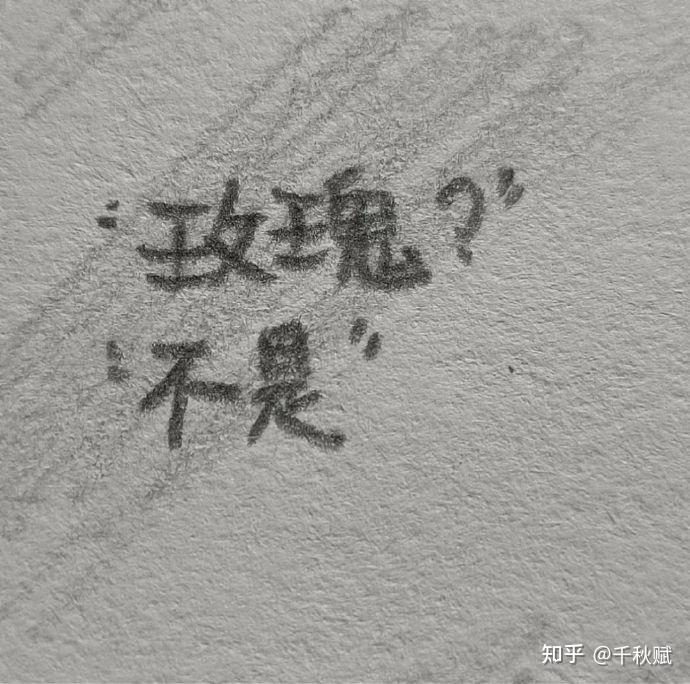 “玫瑰？”
“不是”
知乎 @千秋赋